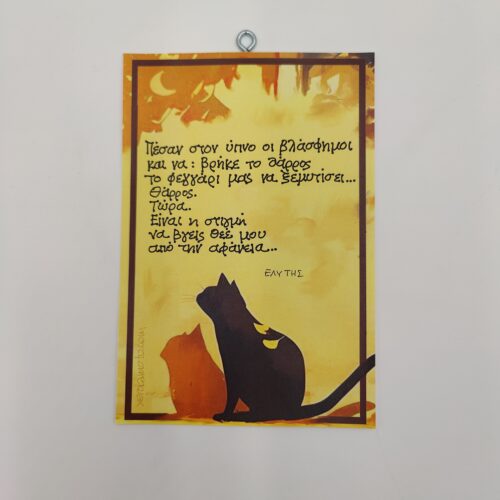 Πέσαν στον ύπνο οι βλάσφημοι
και να: βρήκε το θάρρος
το φεγγάρι μας να ξεμυτίσει...
Θάρρος.
Τώρα..
Είναι η στιγμή
να βγεις θεέ μου
από την αφάνεια...
ΕΛΥΤΗΣ